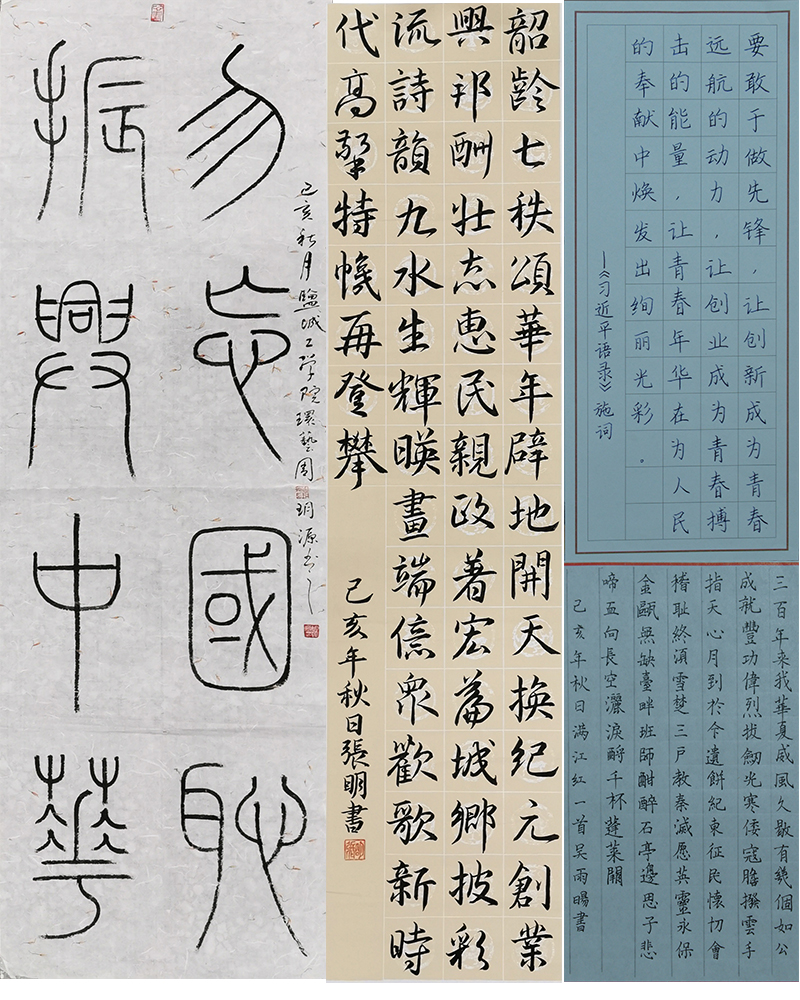 勿忘國恥
振興中華
己亥秋月鹽城工学院環藝周玥源书
韶齡七秩頌華年辟地開天換紀元創業
興邦酬壯志惠民親政著宏篇城鄉披彩
流詩韻九水生輝暎畫端億衆歡歌新時
代高擎特幟再登攀
己亥年秋日張明書
要敢于做先锋，让创新成为青春
远航的动力，让创业成为青春搏
击的能量，让青春年华在为人民
的奉献中焕发出绚丽光彩。
—《习近平语录》施词
三百年来我華夏威風久歇有幾個如公
成就豐功偉烈拔劍光寒倭寇膽撥雲手
指天心月到於今遺餅紀東征民懷切會
稽耻終須雪楚三户教秦滅愿英靈永保
金甌無缺臺畔班師酣醉石亭邊思子悲
啼血向長空灑淚酹千杯蓬萊闕
己亥年秋日满江红一首吴雨暘書